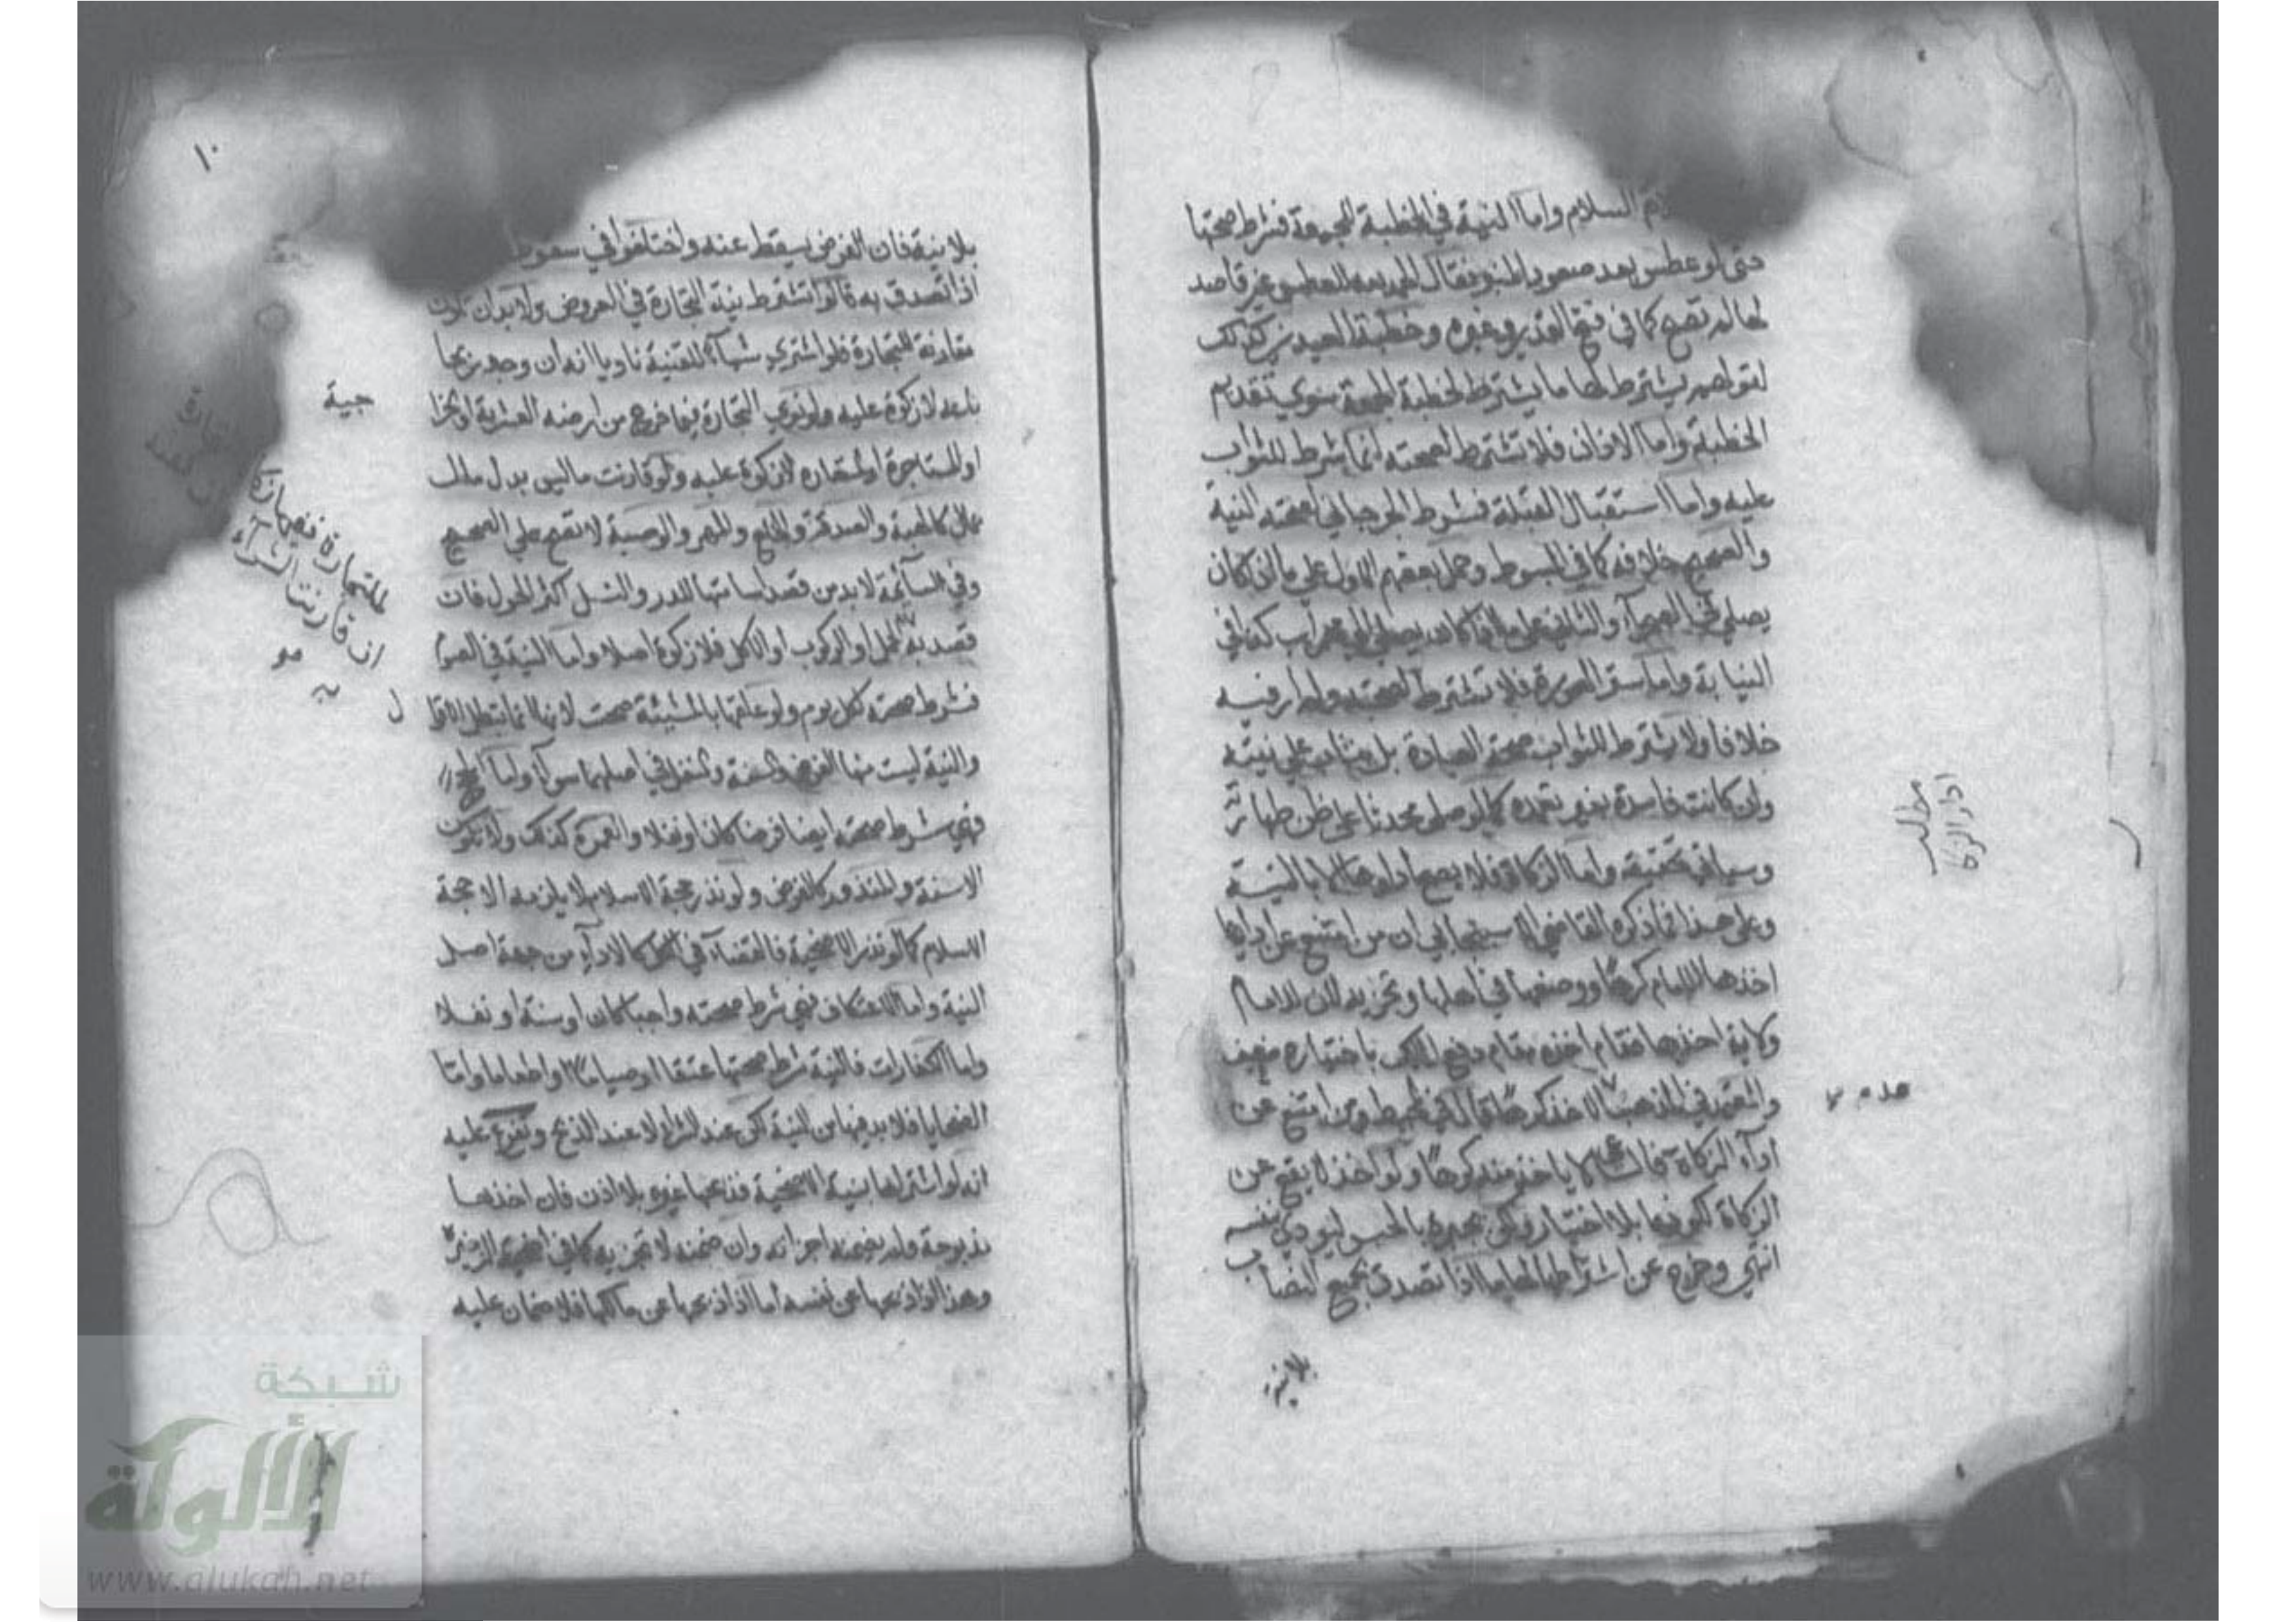 السلام واما النية في الخطبة للجمعة فشرط صحتها
حتى لو عطس بعد صعود المنبر فقال الحمد لله للعطس غير قاصد
لها لم تصح كما في فتح القدير وغيره وخطبة العيدين كذلك
لقولهم يشترط لها ما يشترط لخطبة الجمعة سوي تقديم
الخطبة واما الاذان فلا تشترط لصحته انما شرط للثواب
عليه واما استقبال القبلة فشرط الجرجاني لصحته النية
والصحيح خلافه كما في المبسوط وحمل بعضهم الاول علي ما اذا كان
يصلي في الصحرآء والثاني على ما اذا كان يصلي الي محراب كذا في
البناية واما ستر العورة فلا تشترط لصحته ولم ار فيه
خلافا ولا يشترط للثواب صحة العبادة بل يثاب علي نيته
وان كانت فاسدة بغير تعمده كما لو صلى محدثا على ظن طهارته
وسياتي تحقيقه واما الزكاة فلا يصح أداوها الا بالنية
وعلى هذا فما ذكره القاضي الاسبيجابي ان من امتنع عن ادايها
اخذها الامام كرها ووضعها في اهلها وتجزيه لان للامام
ولاية اخذها فقام اخذه مقام دفع المالك باختياره ضعيف
والمعتمد في المذهب الاخذ كرها قال في المحيط ومن امتنع عن
عدم
ادآء الزكاة فالساعي لا ياخذ منه كرها ولو اخذ لا يقع عن
الزكاة لكونها بلا اختيار ولكن يجبره بالحبس ليودي بنفسه
انتهي وخرج عن اشتراطها لها ما اذا تصدق بجميع النصاب
بلانية
مطلب
اداء الزكاة
١٠
بلا نية فان الفرض يسقط عنه واختلفوا في سقوط
اذا تصدق به قالوا تشترط نية التجارة في العروض ولا بد ان تكون
مقارنة للتجارة فلو اشتري شيأ للقنية ناويا انه ان وجد ربحا
باعه لا زكوة عليه ولو نوي التجارة فيما خرج من ارضه العشرية او الخرا
جية
او المستاجرة او المستعارة لا زكوة عليه ولو قارنت ما ليس بدل ملك
بمال كالهبة والصدقة والخلع والمهر والوصية لا تصح علي الصحيح
وفي السآئمة لا بد من قصد اسامتها للدر والنسل اكثر الحول فان
قصد به الحمل او الركوب او الاكل فلا زكوة اصلا واما النية في الصوم
فشرط صحته لكل يوم ولو علقها بالمشيئة صحت لانها انما تبطل الاقوا
ل
والنية ليست منها الفرض والسنة والنفل في اصلها سوآء واما الحج
فهي شرط صحته ايضا فرضا كان او نفلا والعمرة كذلك ولا تكون
الا سنة والمنذور كالفرض ولو نذر حجة الاسلام لا يلزمه الا حجة
الاسلام كما لو نذر الاضحية فالقضآء في الكل كالادآء من جهة اصل
النية واما الاعتكاف فهي شرط صحته واجبا كان او سنة او نفلا
واما الكفارات فالنية شرط صحتها عتقا او صياما او اطعاما واما
الضحايا فلا بد فيها من النية لكن عند الشراء لا عند الذبح وتفرع عليه
انه لو اشتراها بنية الاضحية فذبحها غيره بلا اذن فان اخذها
مذبوحة ولم يضمنه اجزاته وان ضمنه لا تجزيه كما في اضحية الذخيرة
وهذا اذا ذبحها عن نفسه أما اذا ذبحها عن مالكها فلا ضمان عليه
للتجارة
ان قارنت الشرآء
شبكة
الألوكة
www.alukah.net